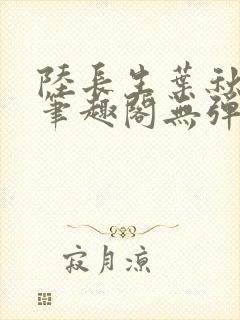 陸長生葉秋
筆趣閣無彈
寂月凉